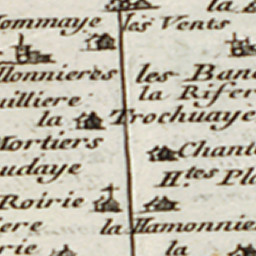 Pommaye les Vents
llonnieres les Banc
uilliere la Rifer
la Trochuaye
Mortiers
Chant
udaye
H.tes Pl
Roirie
iere la Hamonnie
rie la